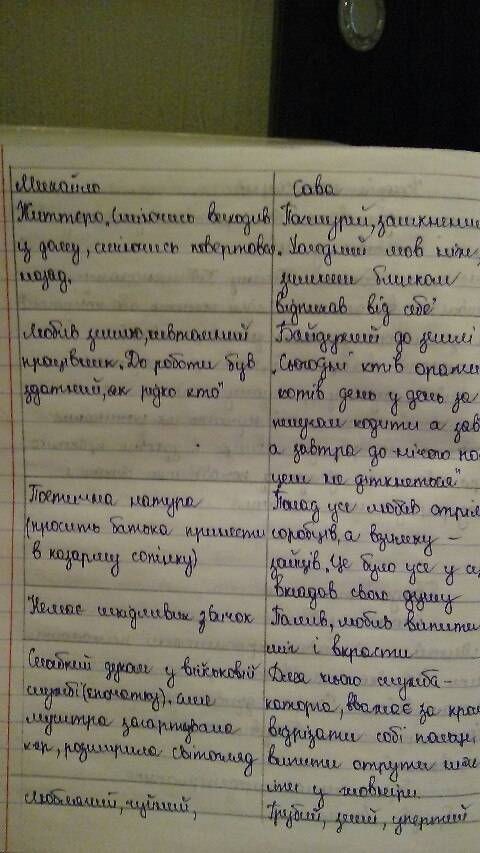 Михайло
Сава
Життєра. "сміючись виходив
із дому, сміючись повертався
назад.
Похмурий, замкнений
"Холодний мов ніж,
блиском
відпихав від себе"
Любив землю, невтомний
працівник. До роботи був
здатний, як рідко хто"
Байдужий до землі
"Сьогодні хтів орати
хотів день у день за
плугом ходити а зав
а завтра до нічого по
цем не діткнеться"
Поетична натура
(просить батька принести
в казарму сопілку)
Понад усе любив стріл
горобців, а взимку –
зайців. Це було усе у
вкладав свою душу
Немає шкідливих звичок
Палив, любив випити
міг і вкрасти
Слабкий духом у військовій
службі (спочатку). але
муштра загартувала
хар, розширила світогляд
Для нього служба –
каторга, вважає за кра
відрізати собі палец
випити отрути ніж
іти у москалі.
Люблячий, чуйний,
Грубий, злий, упертий